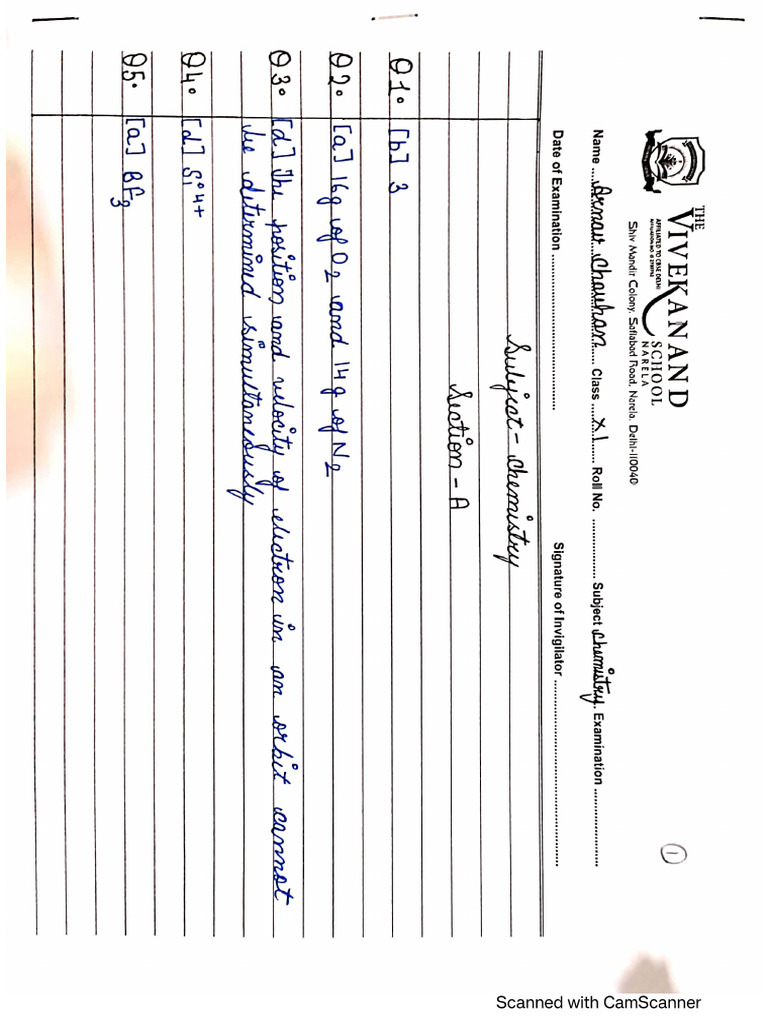 THE
VIVEKANAND
AFFILIATED TO CBSE DELHI
SCHOOL
NARELA
Shiv Mandir Colony, Safiabad Road, Narela, Delhi-110040
1
Name ... Arnav Chauhan .... Class .... XI ...... Roll No. ................ Subject Chemistry. Examination ................
Date of Examination ................ Signature of Invigilator ................
Subject - Chemistry
Section - A
Q1. [b] 3
Q2. [a] 16g of O2 and 14g of N2
Q3. [d] The position and velocity of electron in an orbit cannot
be determined simultaneously
Q4. [d] Si4+
Q5. [a] BF3
Scanned with CamScanner